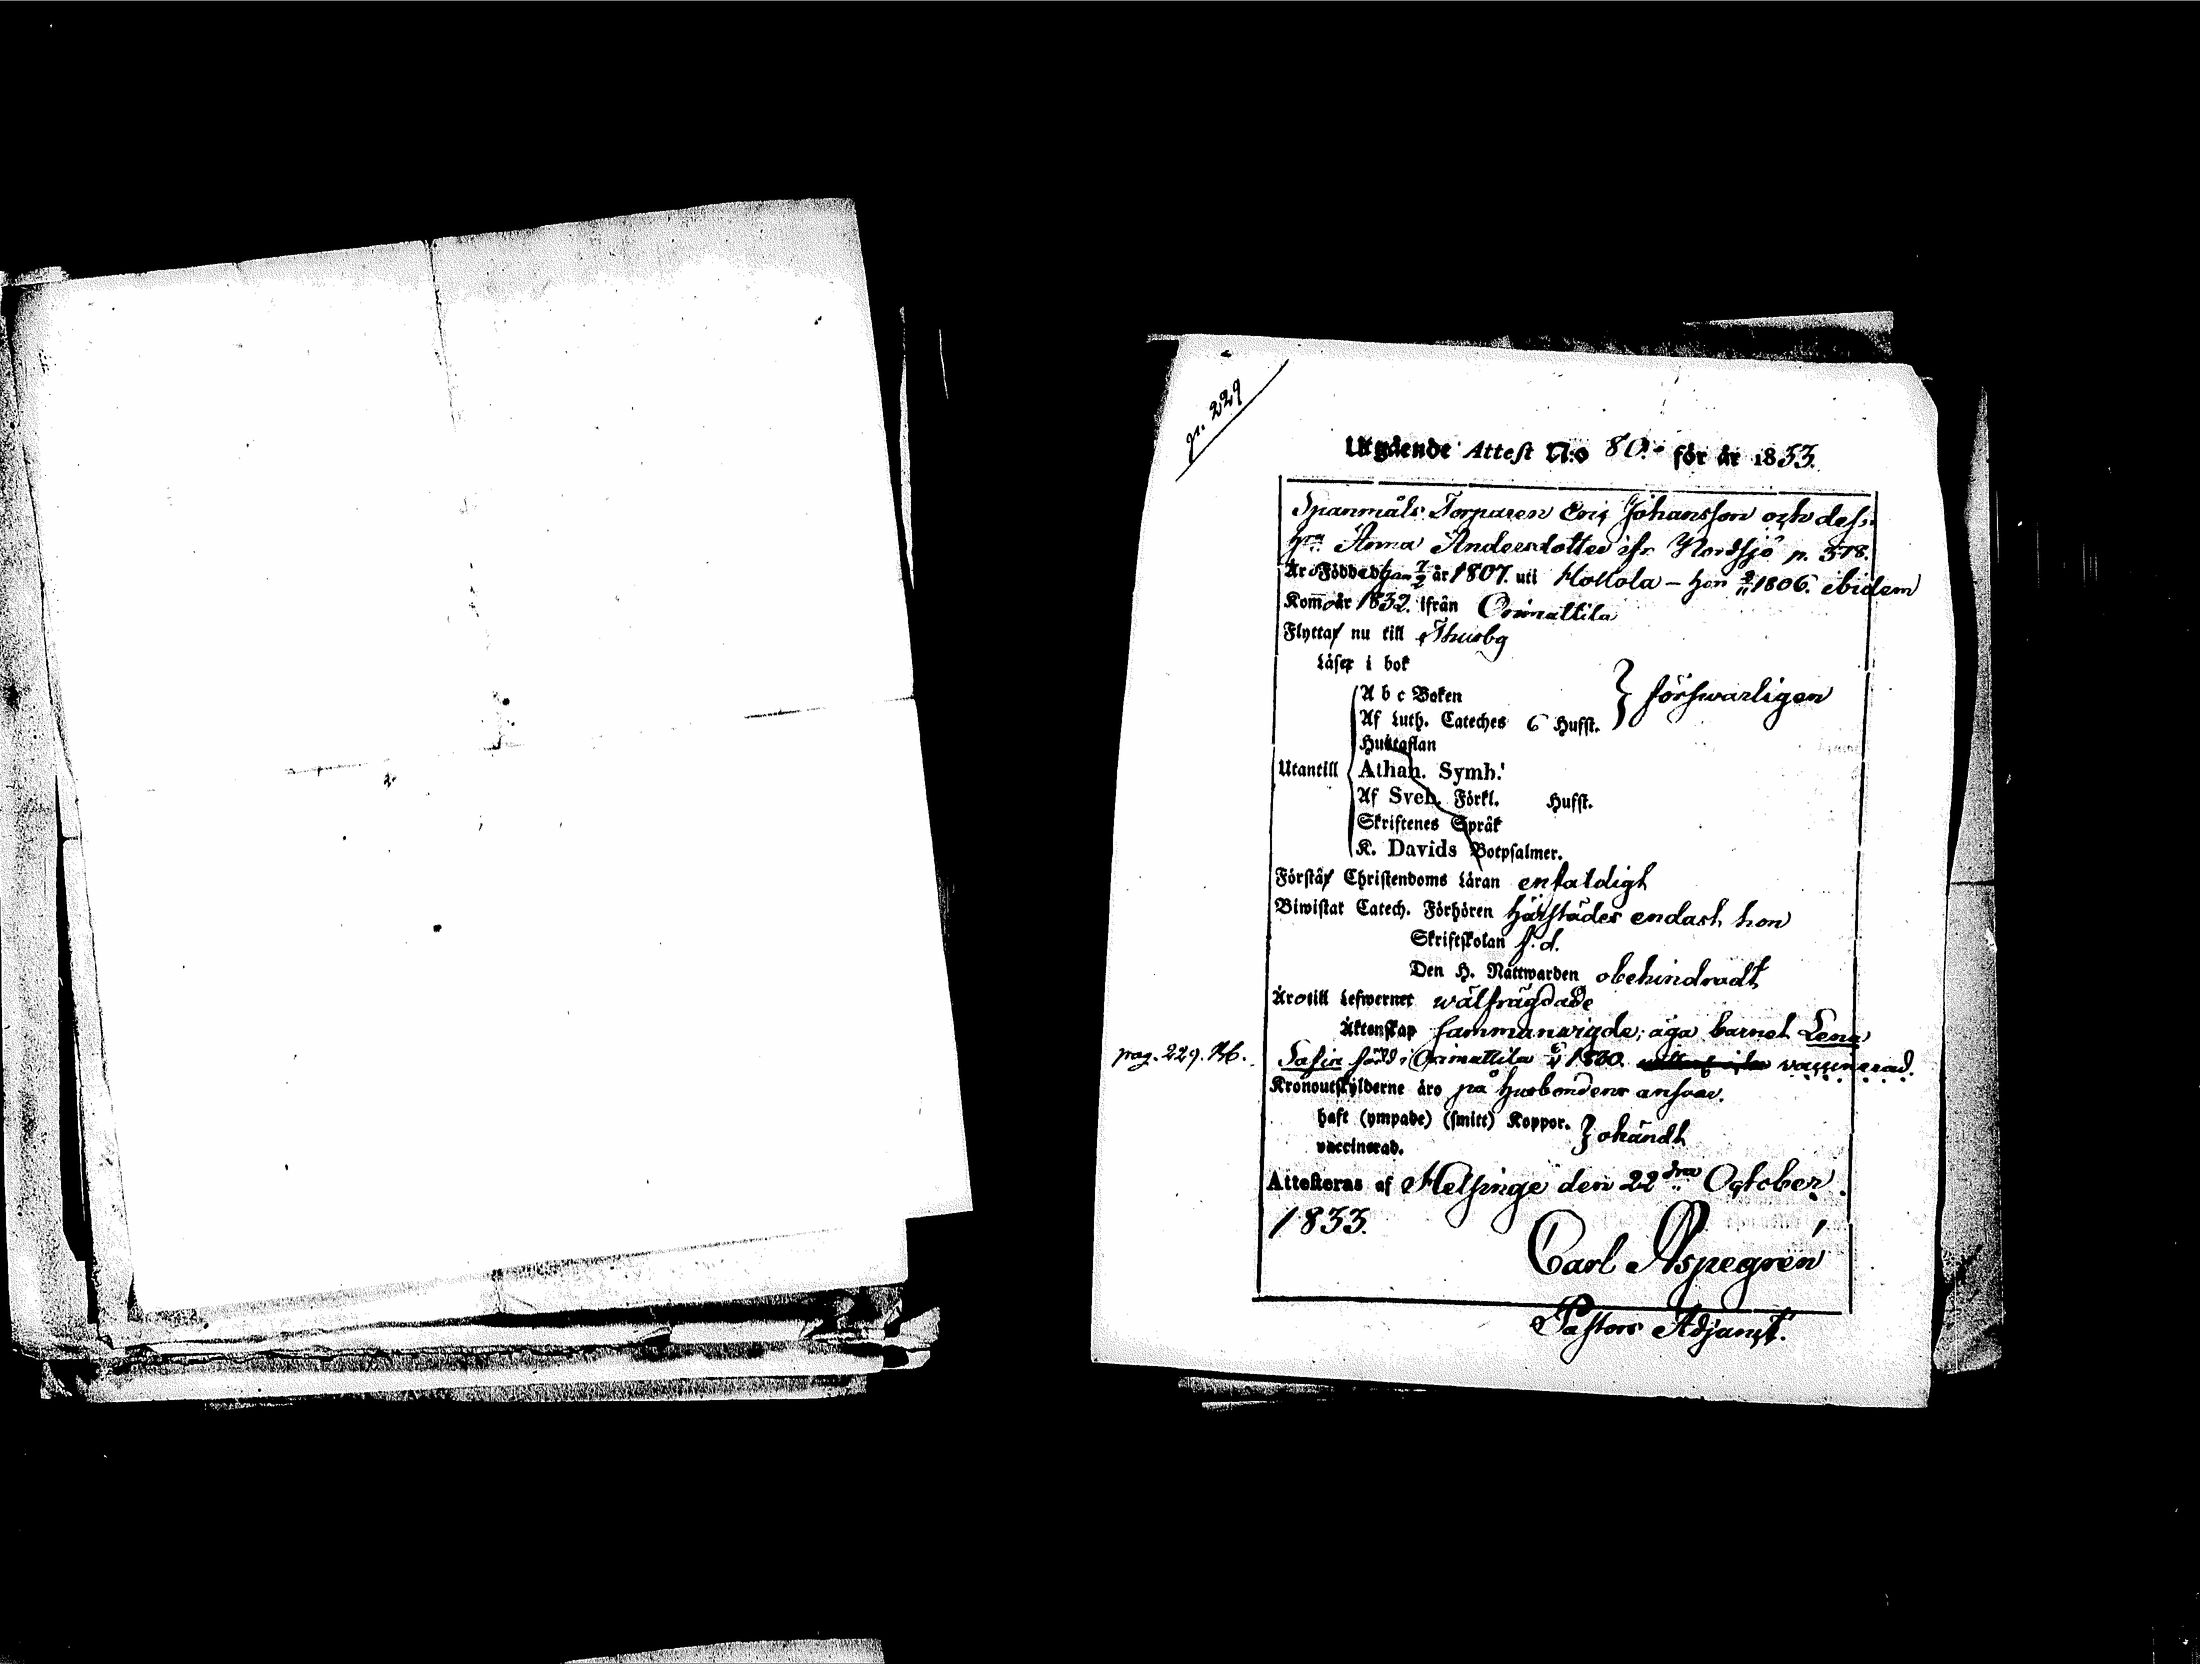 p. 229
Utgående Attest N:o 80. för år 1833.
Spanmåls Torparen Eric Johansson och dess
hru Anna Andersdotter ifr. Nordsjö p. 318.
Äro Födde han 7/2 år 1807. uti Hollola – hon 2/11 1806. ibidem
Kom̅o år 1832. ifrån Orimattila
Flytta nu till Thusby
Läser i bok
A b c Boken
Af Luth. Cateches 6 Hufst. } försvarligen
Hustaflan
Utantill Athan. Symb.
Af Sveb. Förkl. Hufst.
Skriftenes Språk
K. Davids Botpsalmer.
Förstå Christendoms Läran enfaldigt
Biwistat Catech. Förhören härstädes endast hon
Skriftskolan s. d.
Den H. Nattwarden obehindradt
Äro till Lefwernet wälfrägdade
Äktenskap sammanvigde; äga barnet Lena
pag. 229. Kb. Sofia född i Orimattila 1830. vaccinerad.
Kronoutskylderne äro på husbondens ansvar.
haft (ympade) (smitt) Koppor. } okändt
vaccinerad.
Attesteras af Helsinge den 22dra October.
1833.
Carl Aspegrén
Pastors Adjunct.